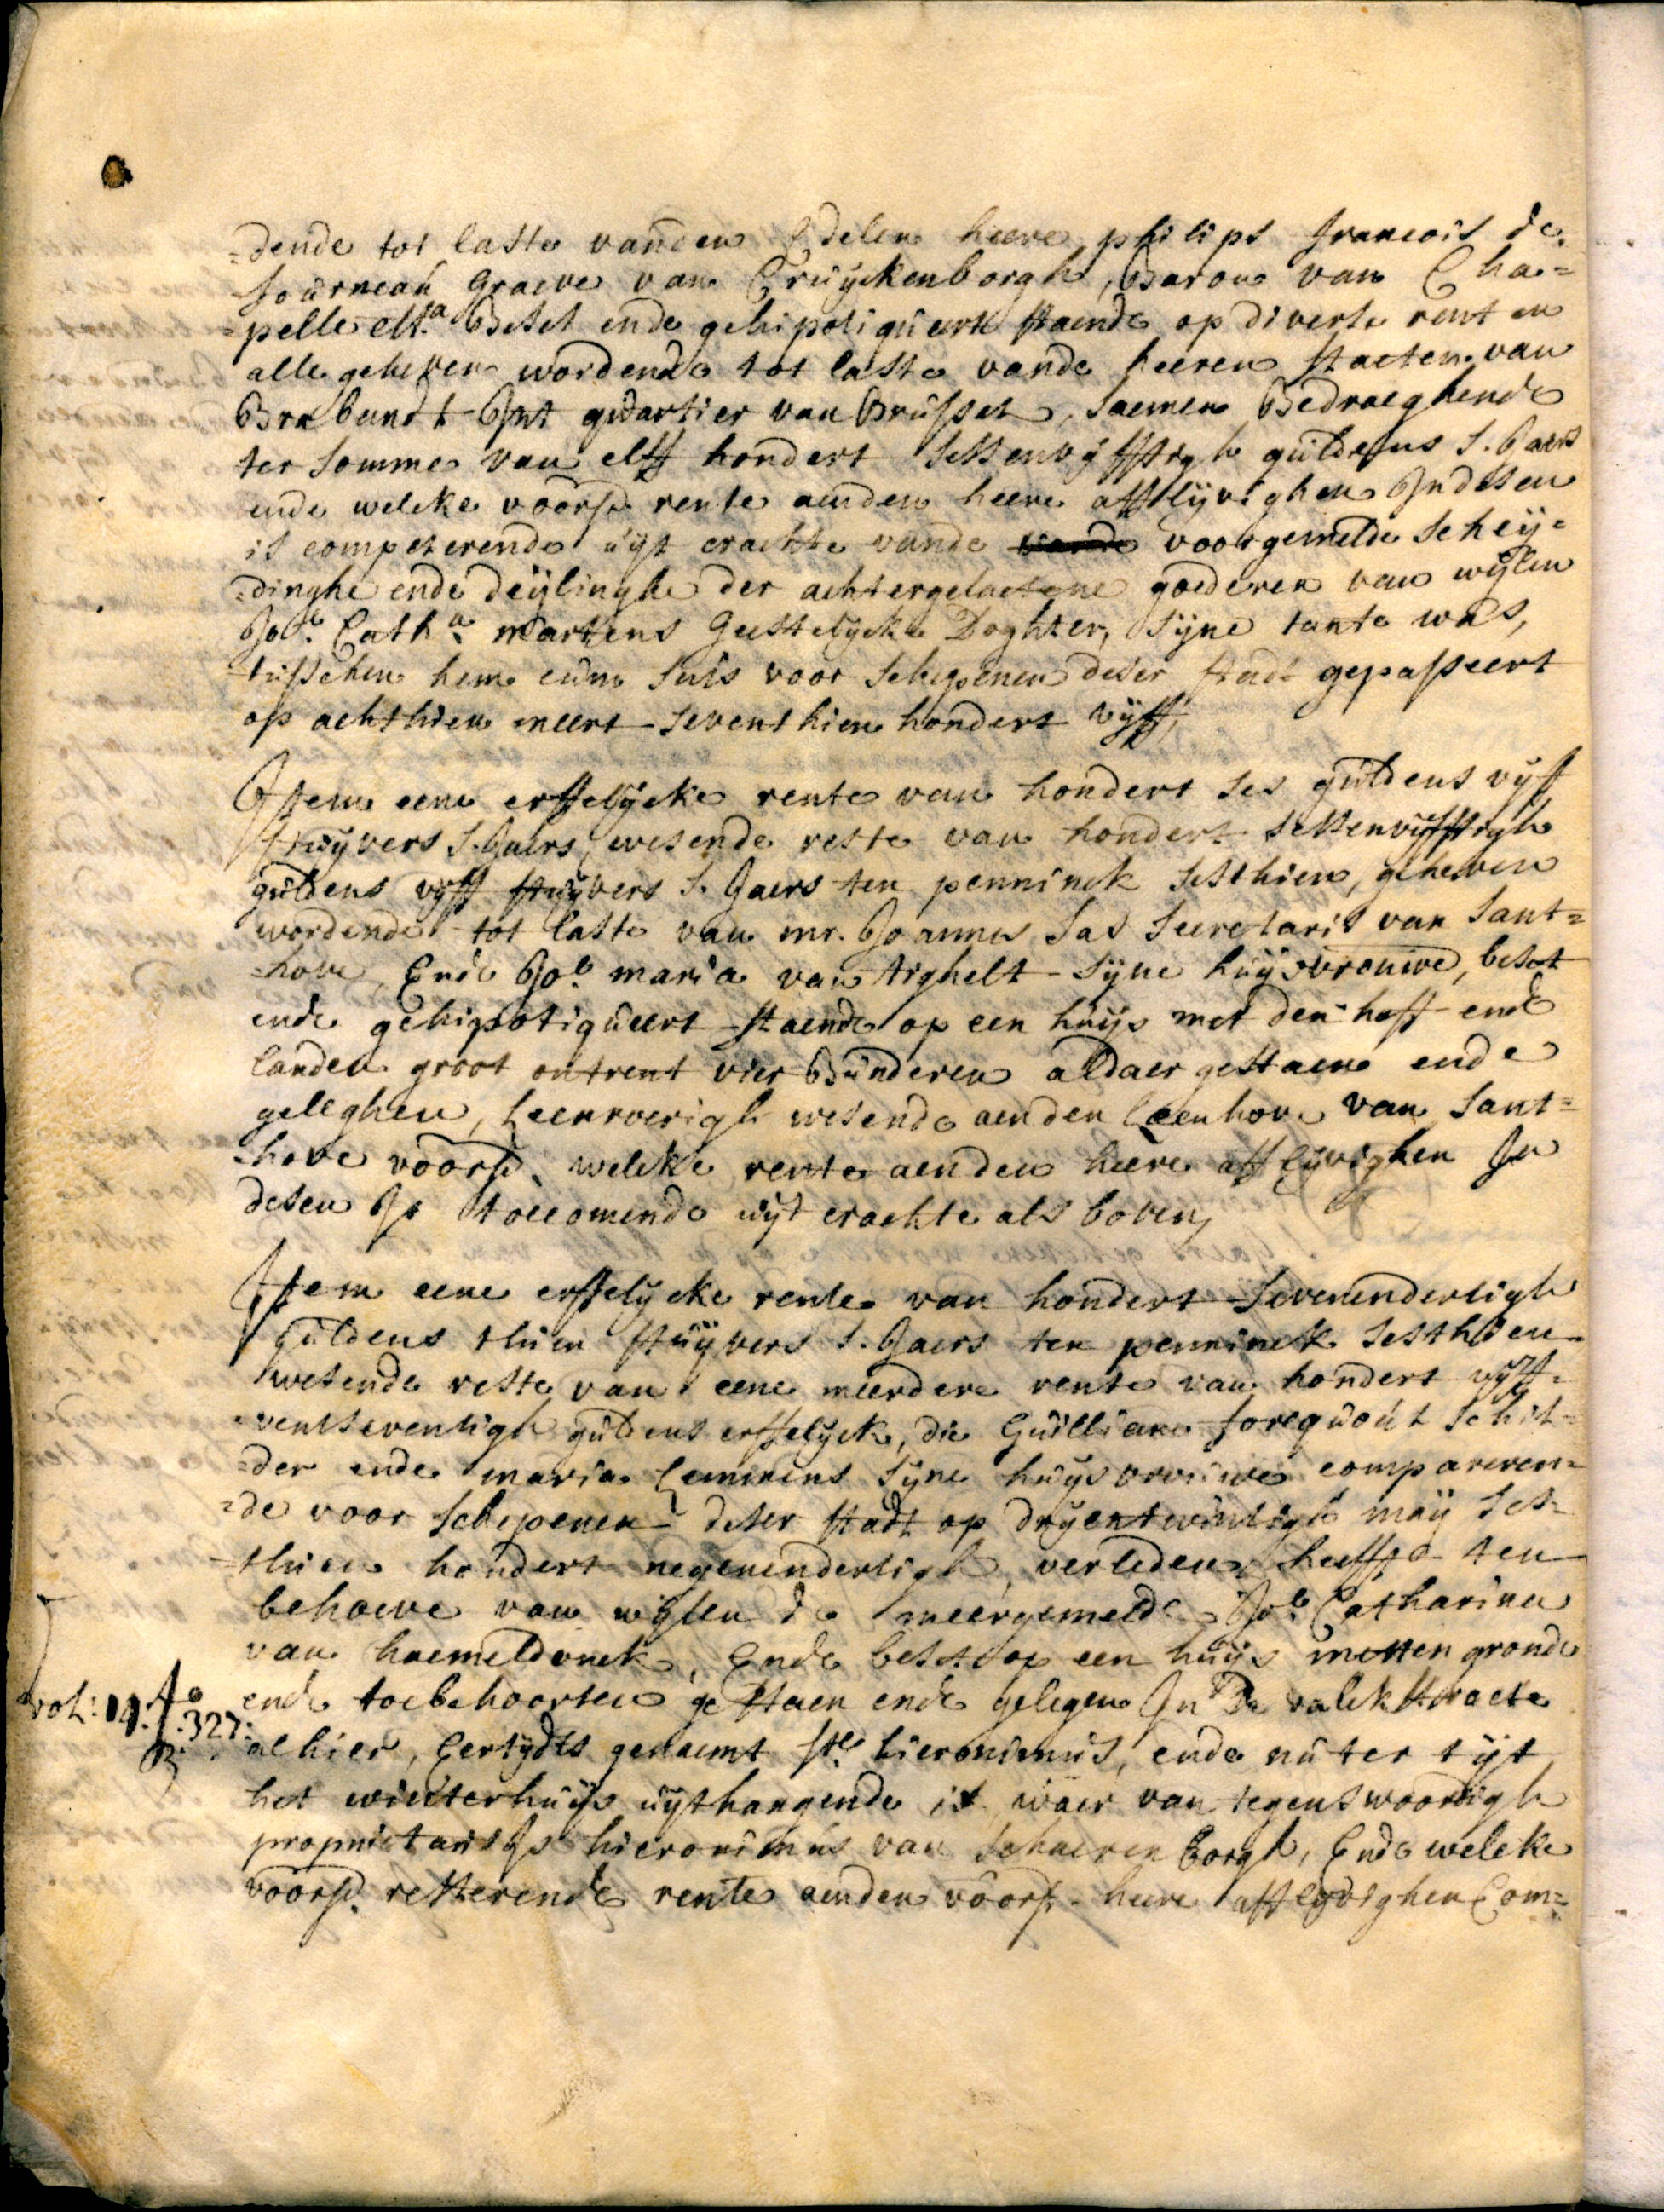 =dende tot laste vanden Edelen heere philips francois de
fourneau Graeve van Cruijckenborgh, Baron van Cha=
=pelle etta. Beset ende gehipotiqueert staende op diverse renten
alle geheven wordende tot laste vande heeren staeten van
Brabandt Int quartier van Brussel, saemen Bedraeghende
ter somme van elff hondert sessenvijfftigh guldens s. Jaers
ende welcke voorsz. rente aenden heere afflijvighen Indesen
is competerende uijt crachte vande voorgemelde scheij=
=dinghe ende deijlinghe der achtergelaetene goederen van wijlen
Joe. Catha. Martens Geestelijcke Doghter, sijne tante was,
tusschen hem cum suis voor schepenen deser stadt gepasseert
op achthien meert seventhien hondert vijff,
Item eene erffelijcke rente van hondert ses guldens vijff
stuijvers s. Jaers, wesende reste van hondert sessenvijfftigh
guldens vijff stuijvers s. Jaers ten penninck sesthien, geheven
wordende tot laste van mr. Joannes Sas Secretaris van Sant=
=hove, Ende Joe. maria van Aighelt sijne huijsvrouwe, beset
ende gehipotiqueert staende op een huijs met den hoff ende
landen groot ontrent vier Bunderen aldaer gestaen ende
geleghen, Leenroerigh wesende aenden Leenhove van Sant=
=hove voorsz. welcke rente aenden heere afflijvighen In
desen Is toecomende uijt crachte als boven,
Item eene erffelijcke rente van hondert sevenendertigh
guldens thien stuijvers s. Jaers ten penninck sesthien
wesende reste van eene meerdere rente van hondert vijff=
=entseventigh guldens erffelijck, die Guilliam forcquout schil=
=der ende maria Lemmens sijne huijsvrouwe compareren=
=de voor schepenen deser stadt op drijentwintigh maij ses=
=thien hondert negenendertigh, verleden heefft ten
behoeve van wijlen de meergemelde Joe. Catharina
van haemeldonck, Ende beset op een huijs metten gronde
ende toebehoorten gestaen ende gelegen In de valckstraete
alhier, Eertijdts genaemt Ste. hieronimus, ende nu ter tijt
het winterhuijs uijthangende is, waer van tegenswoordigh
proprietaris Is hieronimus van Schaerenborgh, Ende welcke
voorsz. resterende rente aenden voorsz. heere afflijvighen Com=
vol: 19. fo
327: